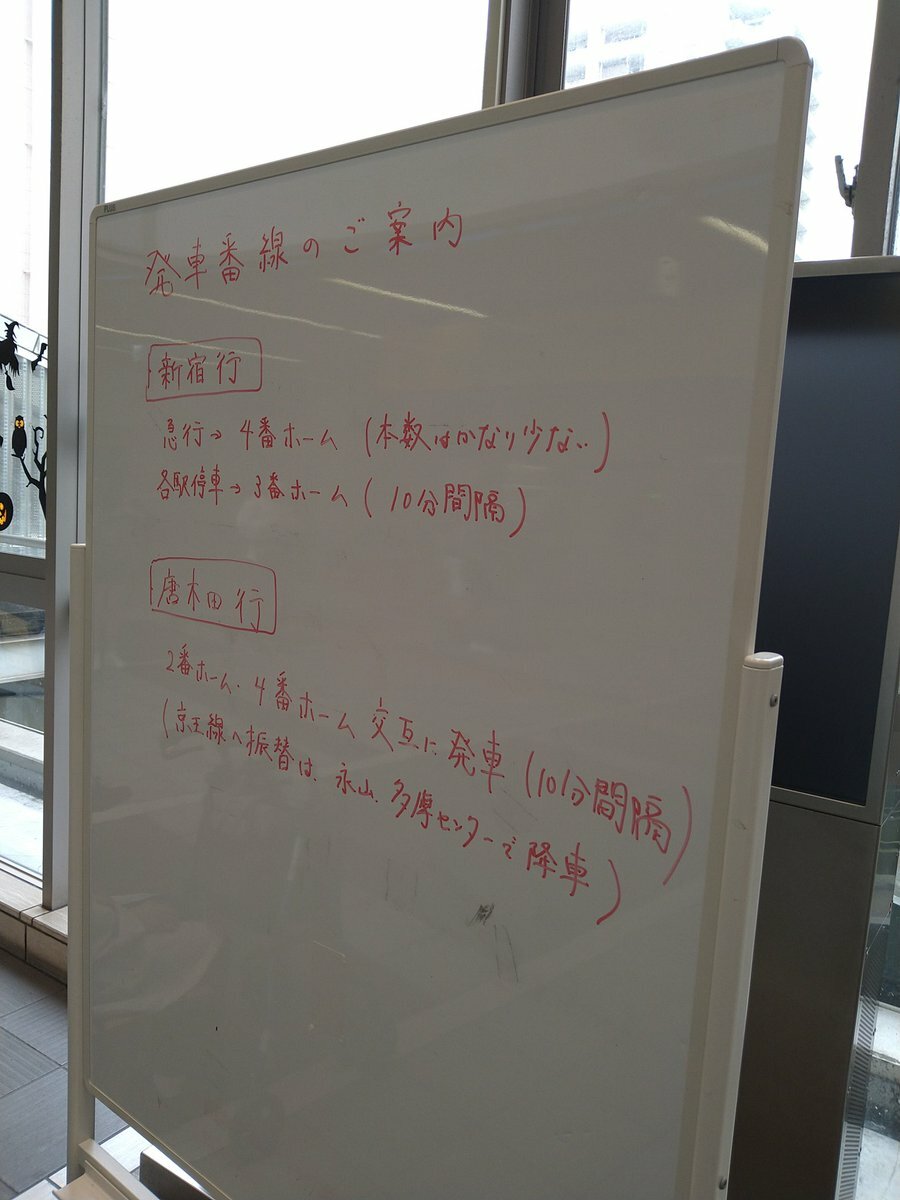 PLUS
発車番線のご案内
新宿行
急行→4番ホーム(本数はかなり少ない)
各駅停車→3番ホーム(10分間隔)
唐木田行
2番ホーム・4番ホーム交互に発車(10分間隔)
(京王線へ振替は、永山、多摩センターで降車)